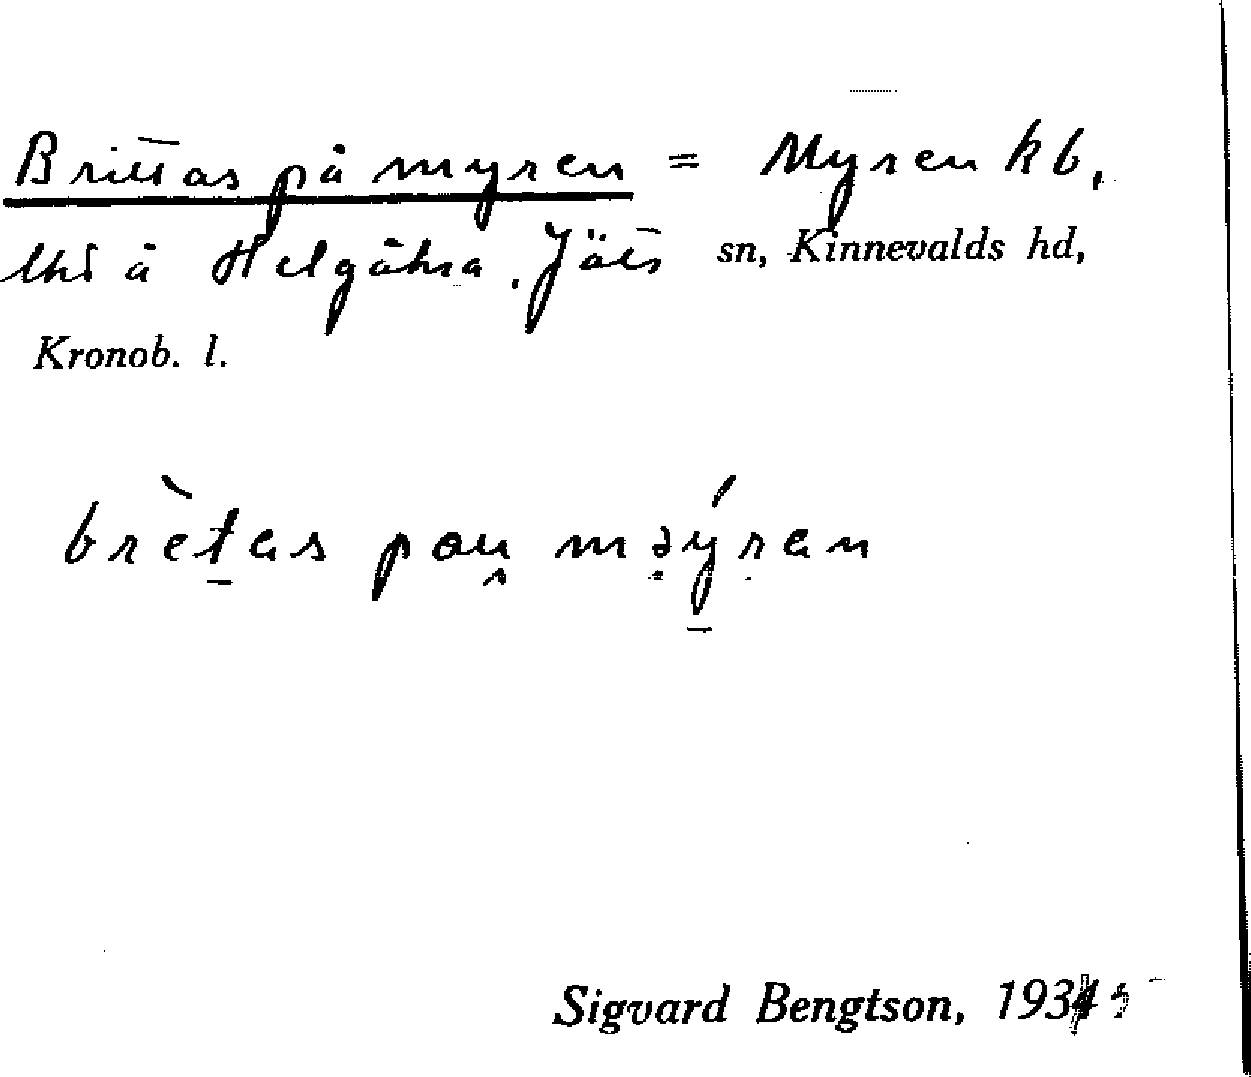 Brittas på myren = Myren kb,
lht å Helgåkra, Jäts sn, Kinnevalds hd,
Kronob. l.
brètas pau məýran
Sigvard Bengtson, 1935